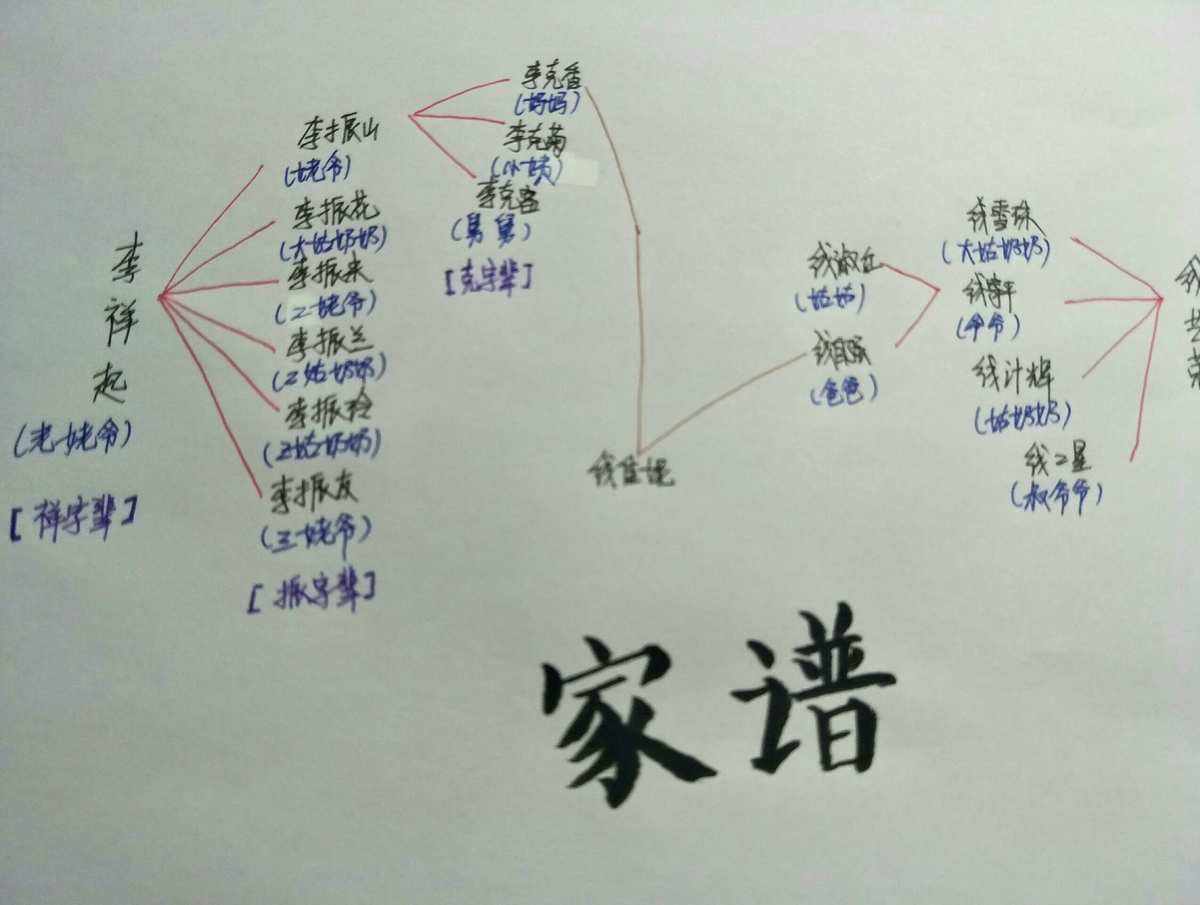 李祥起
(老姥爷)
[祥字辈]
李振山
(姥爷)
李振花
(大姑奶奶)
李振来
(二姥爷)
李振兰
(2姑奶奶)
李振玲
(2姑奶奶)
李振友
(三姥爷)
[振字辈]
李克香
(妈妈)
李克菊
(小姨)
李克
(舅舅)
[克字辈]
钱
钱
(姑姑)
钱
(爸爸)
钱雪珠
(大姑奶奶)
钱
(爷爷)
钱计辉
(姑奶奶)
钱二星
(叔爷爷)
家谱